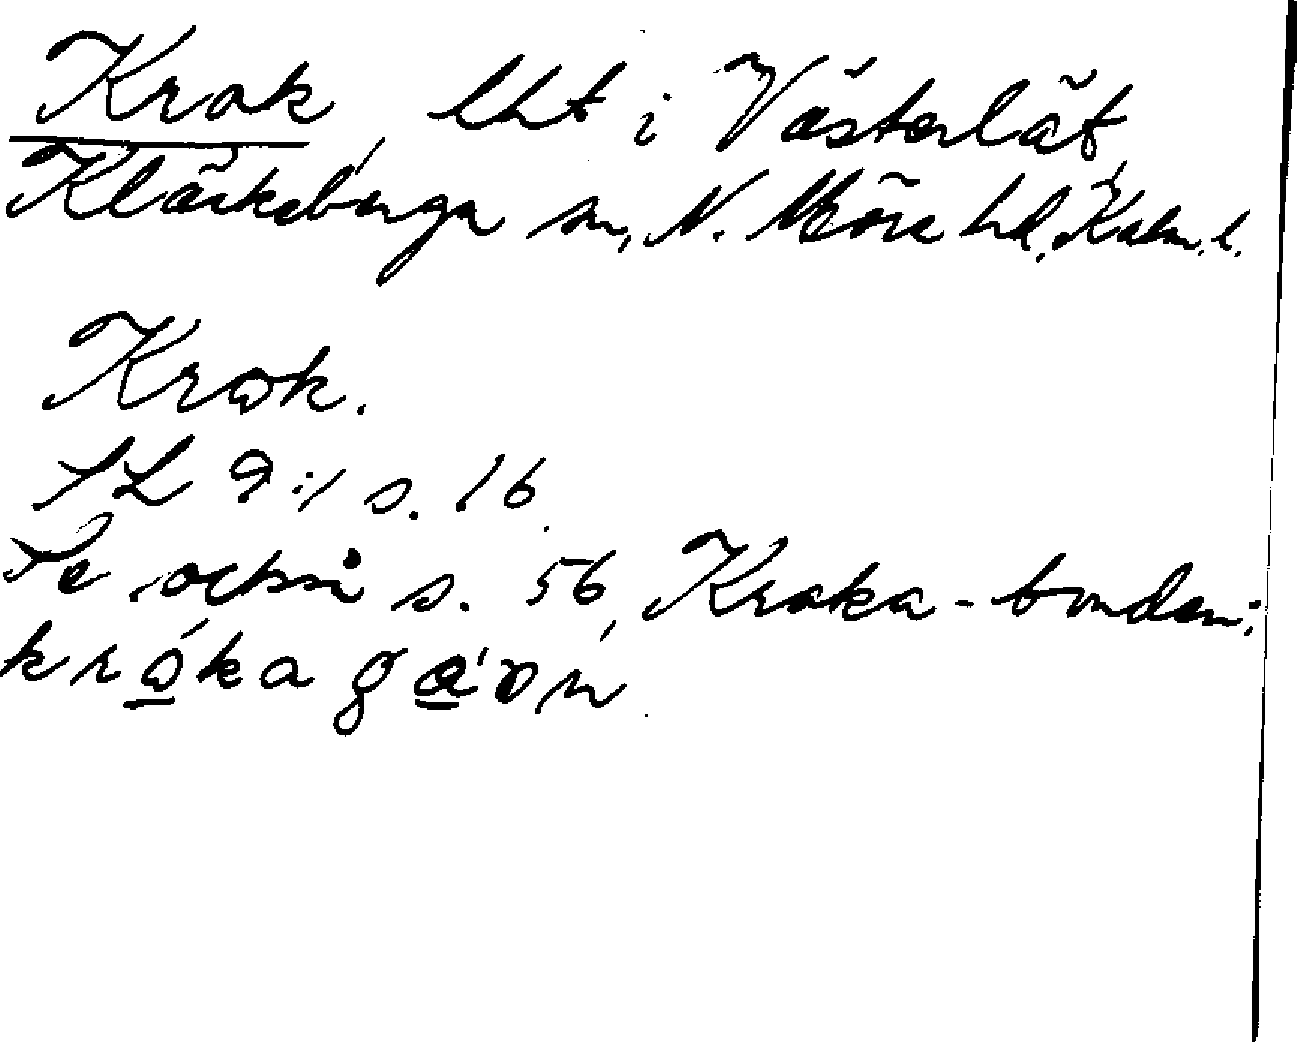 Krok, lht i Västerlät,
Kläckeberga sn, N. Möre hd, Kalm. l.
Krok.
SL 9:1 s. 16.
Se också s. 56, Kroka-bonden:
króka gáon